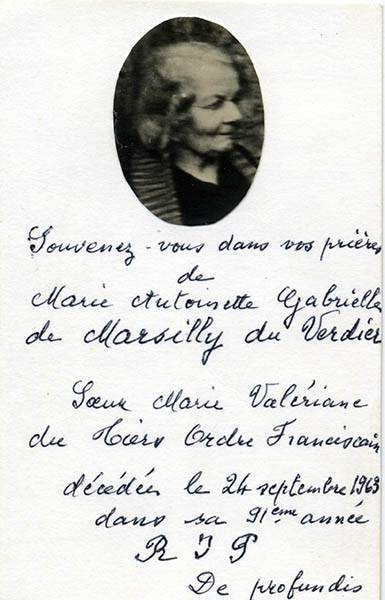 Souvenez-vous dans vos prières
de
Marie Antoinette Gabrielle
de Marsilly du Verdier
Sœur Marie Valériane
du Tiers Ordre Franciscain
décédée le 24 septembre 1963
dans sa 91ème année
R I P
De profundis